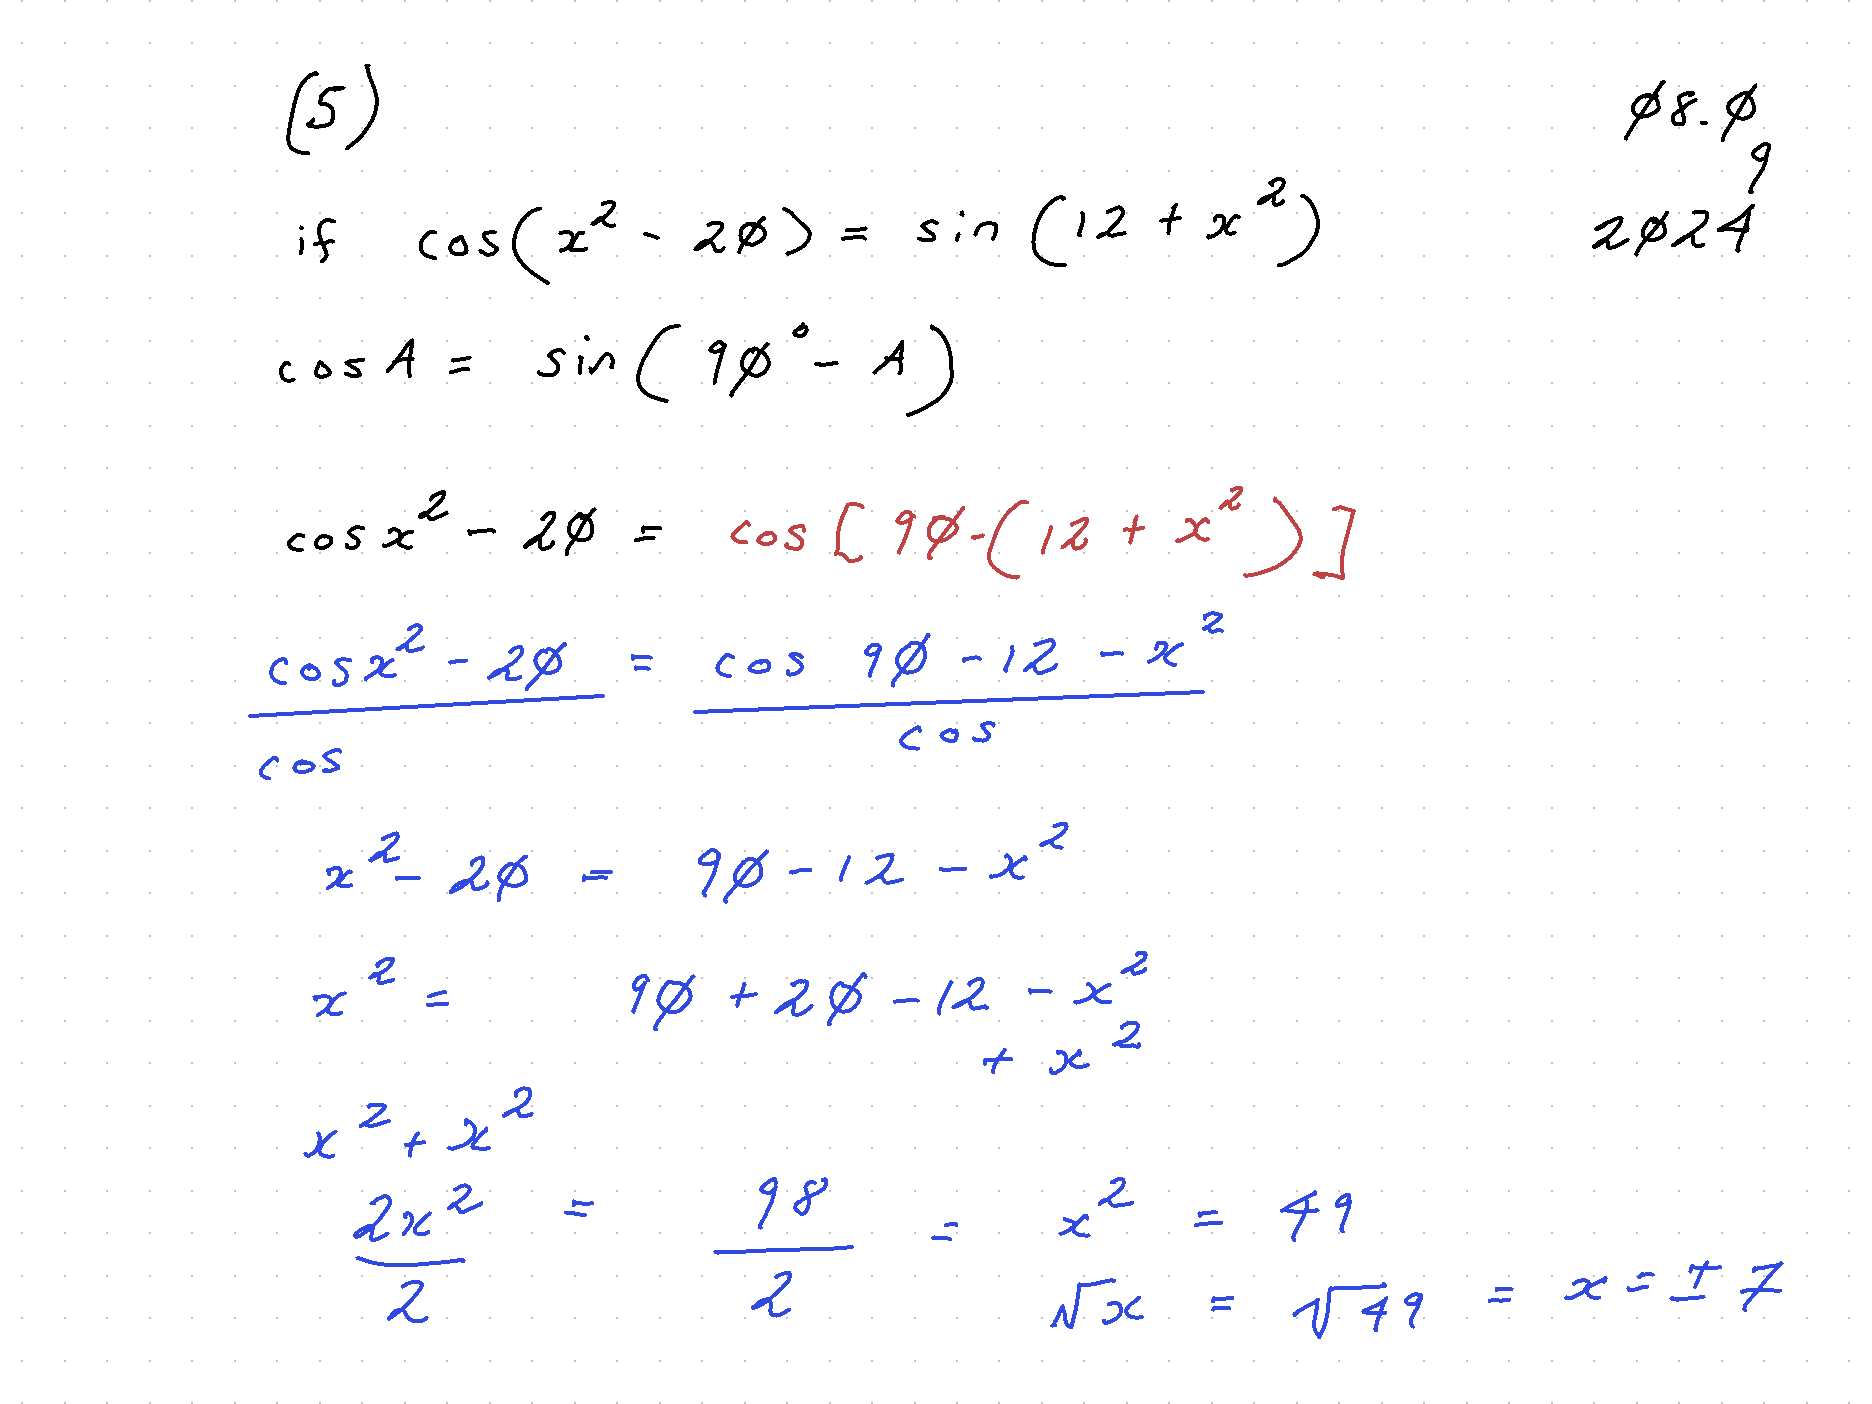 (5)
ø8.ø
9
2ø24
if cos(x² - 2ø) = sin (12 + x²)
cos A = sin (9ø° - A)
cos x² - 2ø = cos [9ø-(12 + x²)]
cos x² - 2ø = cos 9ø - 12 - x²
cos cos
x² - 2ø = 9ø - 12 - x²
x² = 9ø + 2ø - 12 - x²
+ x²
x² + x²
2x² = 98 = x² = 49
2 2 √x = √49 = x = ± 7